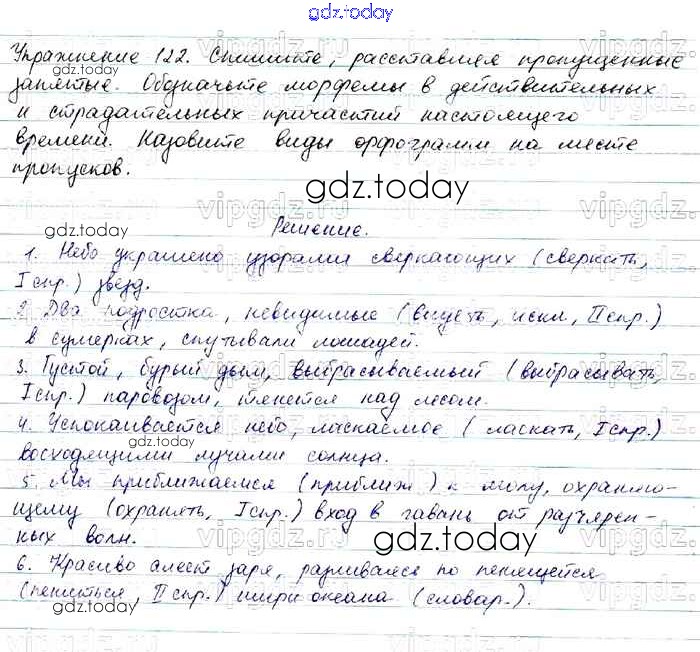 gdz.today
Упражнение 122. Спишите, расставляя пропущенные
gdz.today
запятые. Обозначьте морфемы в действительных
и страдательных причастий настоящего
времени. Назовите виды орфограмм на месте
пропусков.
gdz.today
vipgdz.ru
gdz.today
Решение.
1. Небо украшено узорами сверкающих (сверкать,
I спр.) звезд.
gdz.today
2. Два подростка, невидимые (видеть, искл, II спр.)
в сумерках, спутывали лошадей.
3. Густой, бурый дым, выбрасываемый (выбрасывать,
I спр.) паровозом, тянется над лесом.
gdz.today
4. Успокаивается небо, ласкаемое (ласкать, I спр.)
gdz.today
восходящими лучами солнца.
5. Мы приближаемся (приближ.) к молу, охраняю-
щему (охранять, I спр.) вход в гавань от разъярен-
ных волн.
gdz.today
gdz.today
6. Красиво алеет заря, разливаясь по пенящейся
(пениться, II спр.) шири океана (словар.).
gdz.today